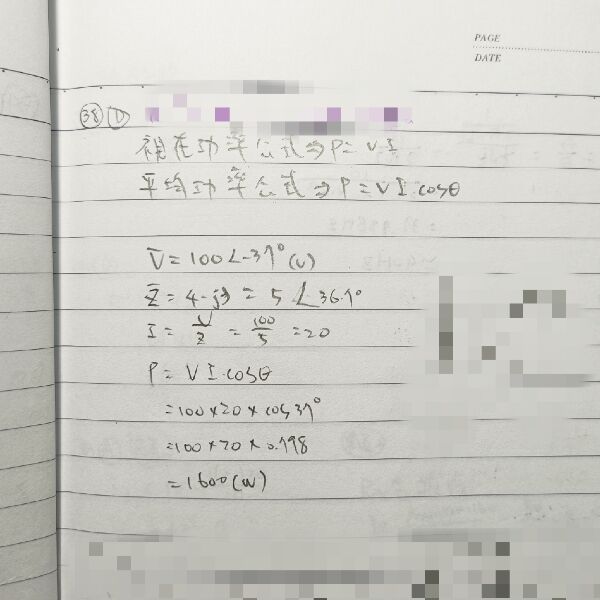 PAGE
DATE
38 D
視在功率公式⇒P=VI
平均功率公式⇒P=VI.cosθ
V̄=100∠-37°(V)
Z̄=4-j3=5∠36.9°
I=V/Z=100/5=20
P=VI.cosθ
=100×20×cos37°
=100×20×0.798
=1600(W)